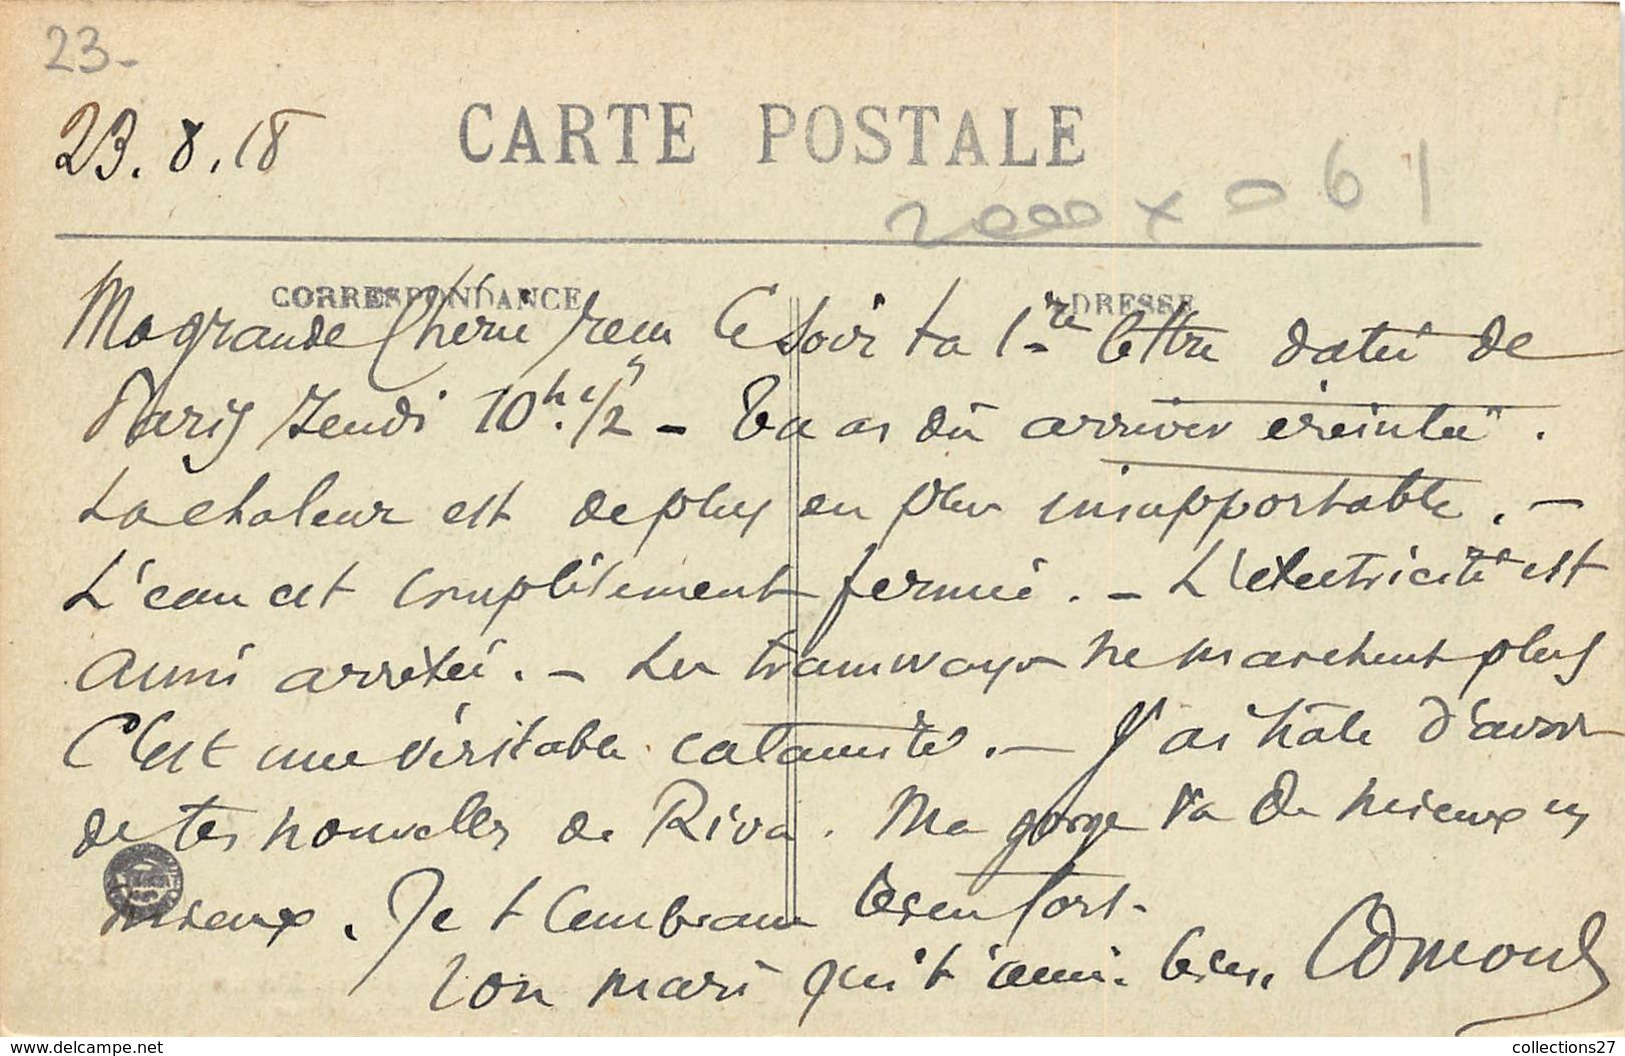 23-
23.8.18
CARTE POSTALE
2000 x 0 61
CORRESPONDANCE
ADRESSE
Ma grande Chérie reçu ce soir ta 1re lettre datée de
Paris Jeudi 10h.1/2 - Tu as dû arriver éreintée.
La chaleur est de plus en plus insupportable. -
L'eau est complètement fermée. - L'électricité est
aussi arrêtée. - Les tramways ne marchent plus
C'est une véritable calamité. - J'ai hâte d'avoir
de tes nouvelles de Riva. Ma gorge va de mieux en
mieux. Je t'embrasse bien fort.
Ton mari qui t'aime bien, Edmond
collections27
www.delcampe.net